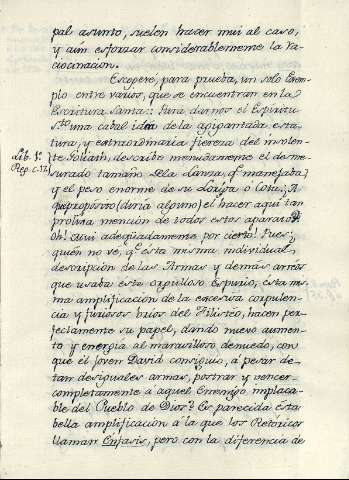 pal asunto, suelen hacer mui al caso,
y aun esforzar considerablemente la ra-
ciocinacion.
Escogeré, para prueba, un solo Exem-
plo entre varios, que se encuentran en la
Escritura Santa: Para darnos el Espiritu
Sto. una cabal idéa de la agigantada esta-
tura, y extraordinaria fiereza del insolen-
Lib. 1º
Reg. c. 17.
te Goliath, describe menudamente el desme-
surado tamaño de la Lanza, qe. manejaba;
y el peso enorme de su Loriga o Cota: A
que propósito (diria alguno) el hacer aqui tan
prolixa mencion de todos estos aparatos?
Oh! Qué adequadamente por cierto! Pues,
quién no ve, qe. esta misma individual
descripcion de las Armas y demas arréos
que usaba este orgulloso Espurio, esta mis-
ma amplificacion de la excesiva corpulen-
cia y furiosos brios del Filistéo, hacen per-
fectamente su papel, dando nuevo aumen-
to y energia al maravilloso denuedo, con
que el joven David consiguio, á pesar de
tan desiguales armas, postrar y vencer
completamente á aquel Enemigo implaca-
ble del Pueblo de Dios? Es parecida esta
bella amplificacion á la que los Retóricos
llaman Enfasis, pero con la diferencia de